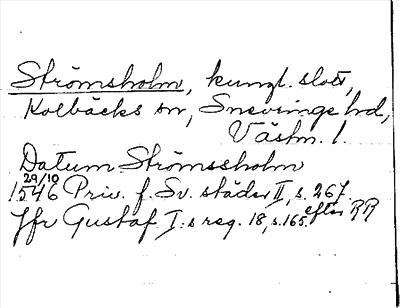 Strömsholm, kungl. slott,
Kolbäcks sn, Snevringe hd,
Västm. l.
Datum Strömssholm
29/10
1546 Priv. f. Sv. städer II, s. 267.
Jfr Gustaf I:s reg. 18, s. 165. efter RR